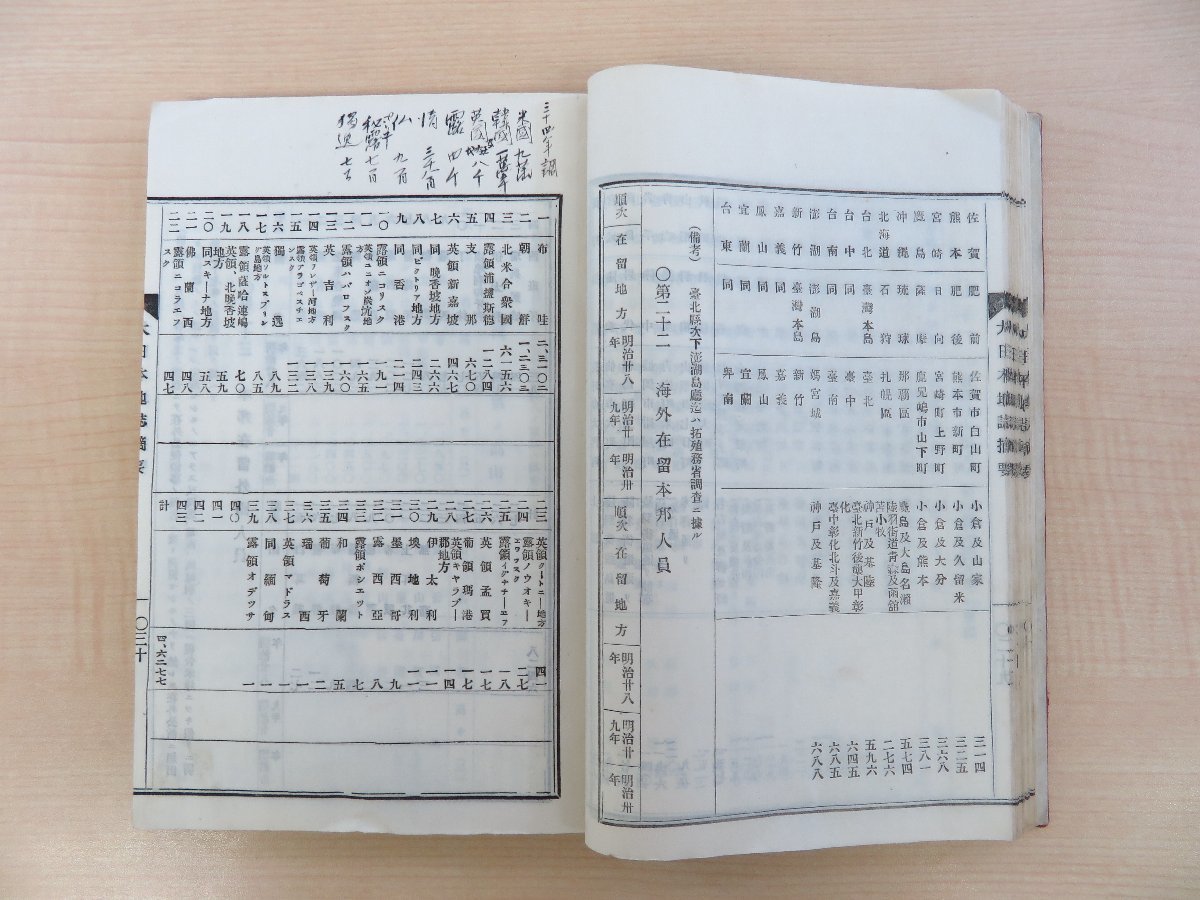 佐賀 肥前 佐賀市白山町 小倉及山家 三一四
熊本 肥後 熊本市新町 小倉及久留米 三二五
宮崎 日向 宮崎町上野町 小倉及大分 三六八
鹿島 薩摩 鹿兒嶋市山下町 小倉及熊本 三八一
沖縄 琉球 那覇區 鹿島及大島名瀬 五七四
北海道 石狩 札幌區 陸羽街道青森及函館苫小牧 二七六
台北 臺灣本島 臺北 神戸及基隆 五九六
台中 同 臺中 臺北新竹後壠大甲彰化 六四五
台南 同 臺南 臺中彰化北斗及嘉義 六八五
澎湖島 澎湖島 媽宮城 神戸及基隆 六八八
新竹 臺灣本島 新竹
嘉義 同 嘉義
鳳山 同 鳳山
宜蘭 同 宜蘭
台東 同 卑南
(備考) 臺北縣以下澎湖島廳迄ハ拓殖務省調査ニ據ル
○第二十二 海外在留本邦人員
順次 在留地方 明治廿八年 明治廿九年 明治卅年 順次 在留地方 明治廿八年 明治廿九年 明治卅年
大日本地誌摘要
三十四年調
韓國
露 四千
清 三千八百
仏 九百
秘露 七百
一 布哇 二、三一〇二
二 朝鮮 一、二三〇三
三 北米合衆國 六一五六
四 露領浦鹽斯德 一二八四
五 支那 六七〇
六 英領新嘉坡 四六七
七 同晩香坡地方 二六六
八 同ビクトリア地方 二三三
九 同香港 二一四
一〇 露領ニコリスク 二〇〇
一一 英領ユニオン炭坑地方 一九一
一二 露領ハバロフスク 一六〇
一三 英吉利 一三九
一四 英領フレザー河地方 一三八
一五 露領ブラゴベスチエンスク 一三二
一六 獨逸 八九
一七 英領ソルトスプリング島地方 八五
一八 露領薩哈連嶋 七〇
一九 英領、北晩香坡地方 五八
二〇 同スキーナ地方 五五
二一 佛蘭西 四八
二二 露領ニコラエフスク 四七
二三 英領クートニー地方 四一
二四 露領ノウオキーエウスク 二七
二五 露領イグナチーエフ 一八
二六 英領孟買 一七
二七 葡領瑪港 一七
二八 英領キャラブー郡地方 一四
二九 伊太利 一一
三〇 墺地利 一一
三一 墨西哥 九
三二 露西亞 八
三三 露領ポシエット 七
三四 和蘭 五
三五 葡萄牙 二
三六 瑞西 一
三七 英領マドラス 一
三八 同緬甸 一
三九 露領オデツサ 一
四〇
四一
四二
四三
計 四、六二七七
大日本地誌摘要
一〇三十